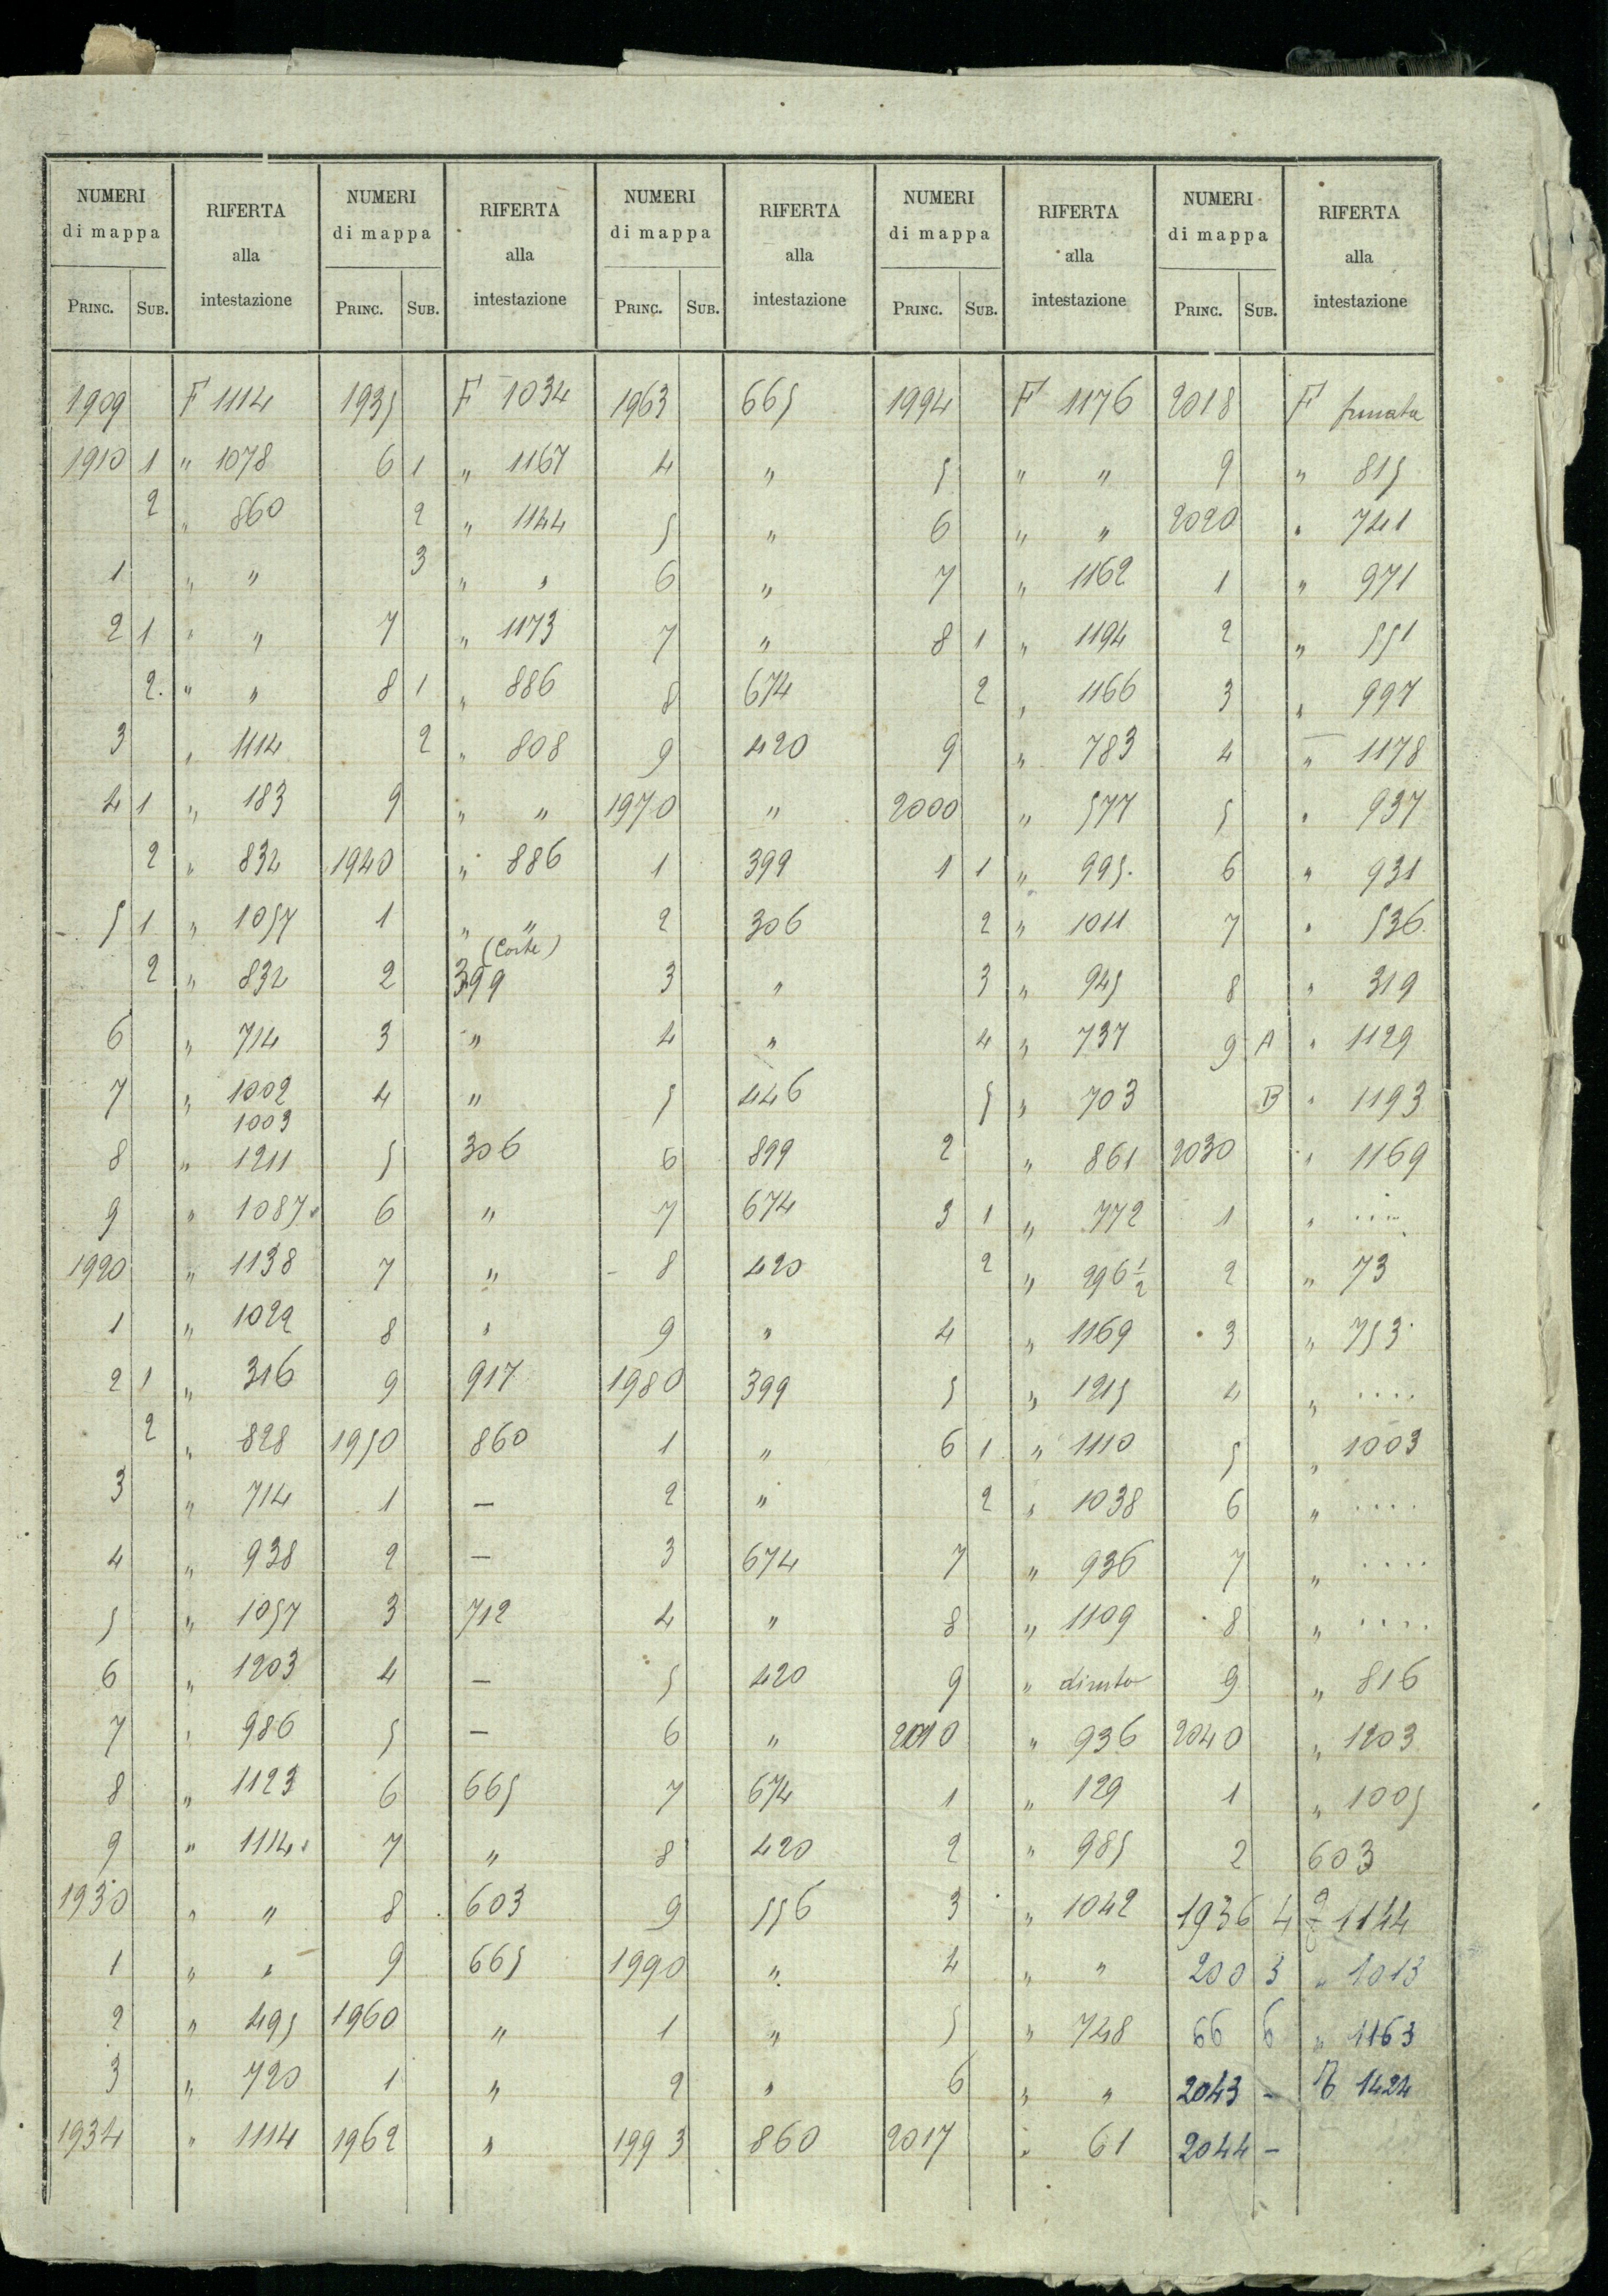 NUMERI di mappa RIFERTA alla intestazione NUMERI di mappa RIFERTA alla intestazione NUMERI di mappa RIFERTA alla intestazione NUMERI di mappa RIFERTA alla intestazione NUMERI di mappa RIFERTA alla intestazione
PRINC. SUB. PRINC. SUB. PRINC. SUB. PRINC. SUB. PRINC. SUB.
1909 F 1114 1935 F 1034 1963 665 1994 F 1176 2018 F
1910 1 " 1078 6 1 " 1167 4 " 5 " " 9 " 815
2 " 860 2 " 1144 5 " 6 " " 2020 " 741
1 " " 3 " " 6 " 7 " 1162 1 " 971
2 1 " " 7 " 1173 7 " 8 1 " 1194 2 " 551
2. " " 8 1 " 886 8 674 2 " 1166 3 " 997
3 " 1114 2 " 808 9 420 9 " 783 4 " 1178
4 1 " 183 9 " " 1970 " 2000 " 577 5 " 937
2 " 832 1940 " 886 1 399 1 1 " 995. 6 " 931
5 1 " 1057 1 " " 2 306 2 " 1011 7 " 536
(Corte)
2 " 832 2 399 3 " 3 " 945 8 " 319
6 " 714 3 " 4 " 4 " 737 9 A " 1129
7 " 1002 4 " 5 446 5 " 703 B " 1193
1003
8 " 1211 5 306 6 899 2 " 861 2030 " 1169
9 " 1087 6 " 7 674 3 1 " 772 1 " ....
1920 " 1138 7 " 8 420 2 " 296 1/2 2 " 73
1 " 1022 8 " 9 " 4 " 1169 3 " 753
2 1 " 316 9 917 1980 399 5 " 1215 4 " ....
2 " 828 1950 860 1 " 6 1 " 1110 5 " 1003
3 " 714 1 — 2 " 2 " 1038 6 " ....
4 " 938 2 — 3 674 7 " 936 7 " ....
5 " 1057 3 712 4 " 8 " 1109 8 " ....
6 " 1203 4 — 5 420 9 " diruta 9 " 816
7 " 986 5 — 6 " 2010 " 936 2040 " 1203
8 " 1123 6 665 7 674 1 " 129 1 " 1005
9 " 1114 7 " 8 420 2 " 985 2 603
1930 " " 8 603 9 556 3 " 1042 1936 4 1144
1 " " 9 665 1990 " 4 " " 200 3 " 1013
2 " 495 1960 " 1 " 5 " 748 66 6 " 1163
3 " 720 1 " 2 " 6 " " 2043 - 1424
1934 " 1114 1962 " 1993 860 2017 " 61 2044 -